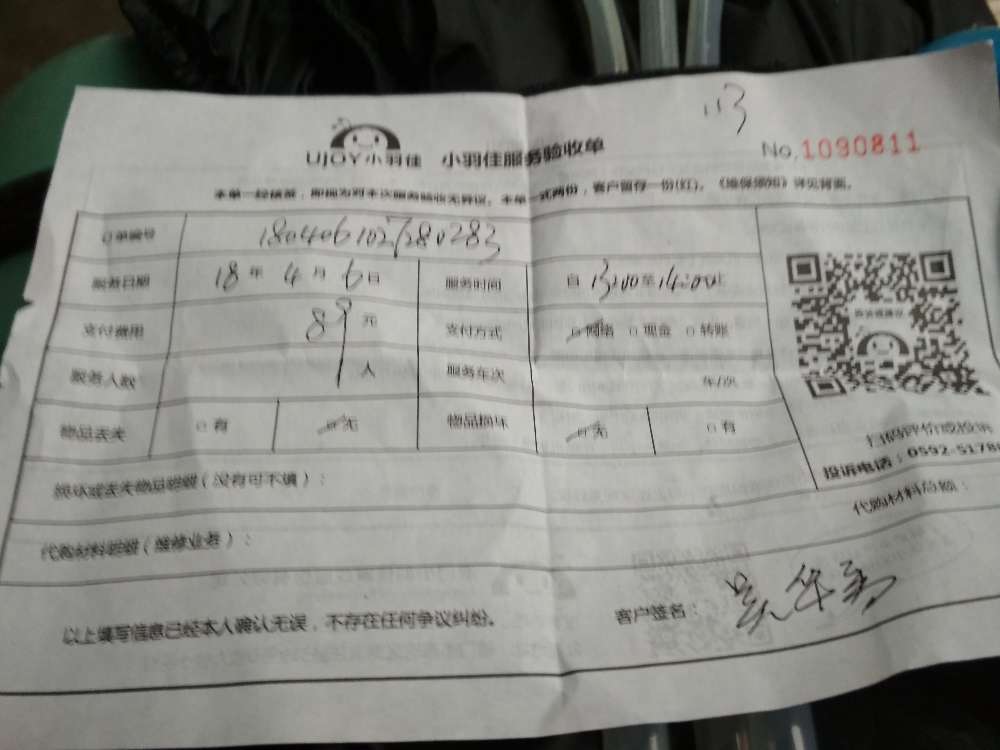 113
UJOY小羽佳 小羽佳服务验收单
No.1090811
本单一经核签，即视为对本次服务验收无异议。本单一式两份，客户留存一份(红)。《维保须知》详见背面。
订单编号 1804061027280283
服务日期 18年4月6日 服务时间 自13:00至14:00止
支付费用 89元 支付方式 □网络 □现金 □转账
服务人数 1人 服务车次 车/次
物品丢失 □有 □无 物品损坏 □无 □有
扫码评价或投诉
投诉电话：0592-5178
损坏或丢失物品明细（没有可不填）：
代购材料明细（维修业务）： 代购材料总额：
以上填写信息已经本人确认无误，不存在任何争议纠纷。 客户签名：